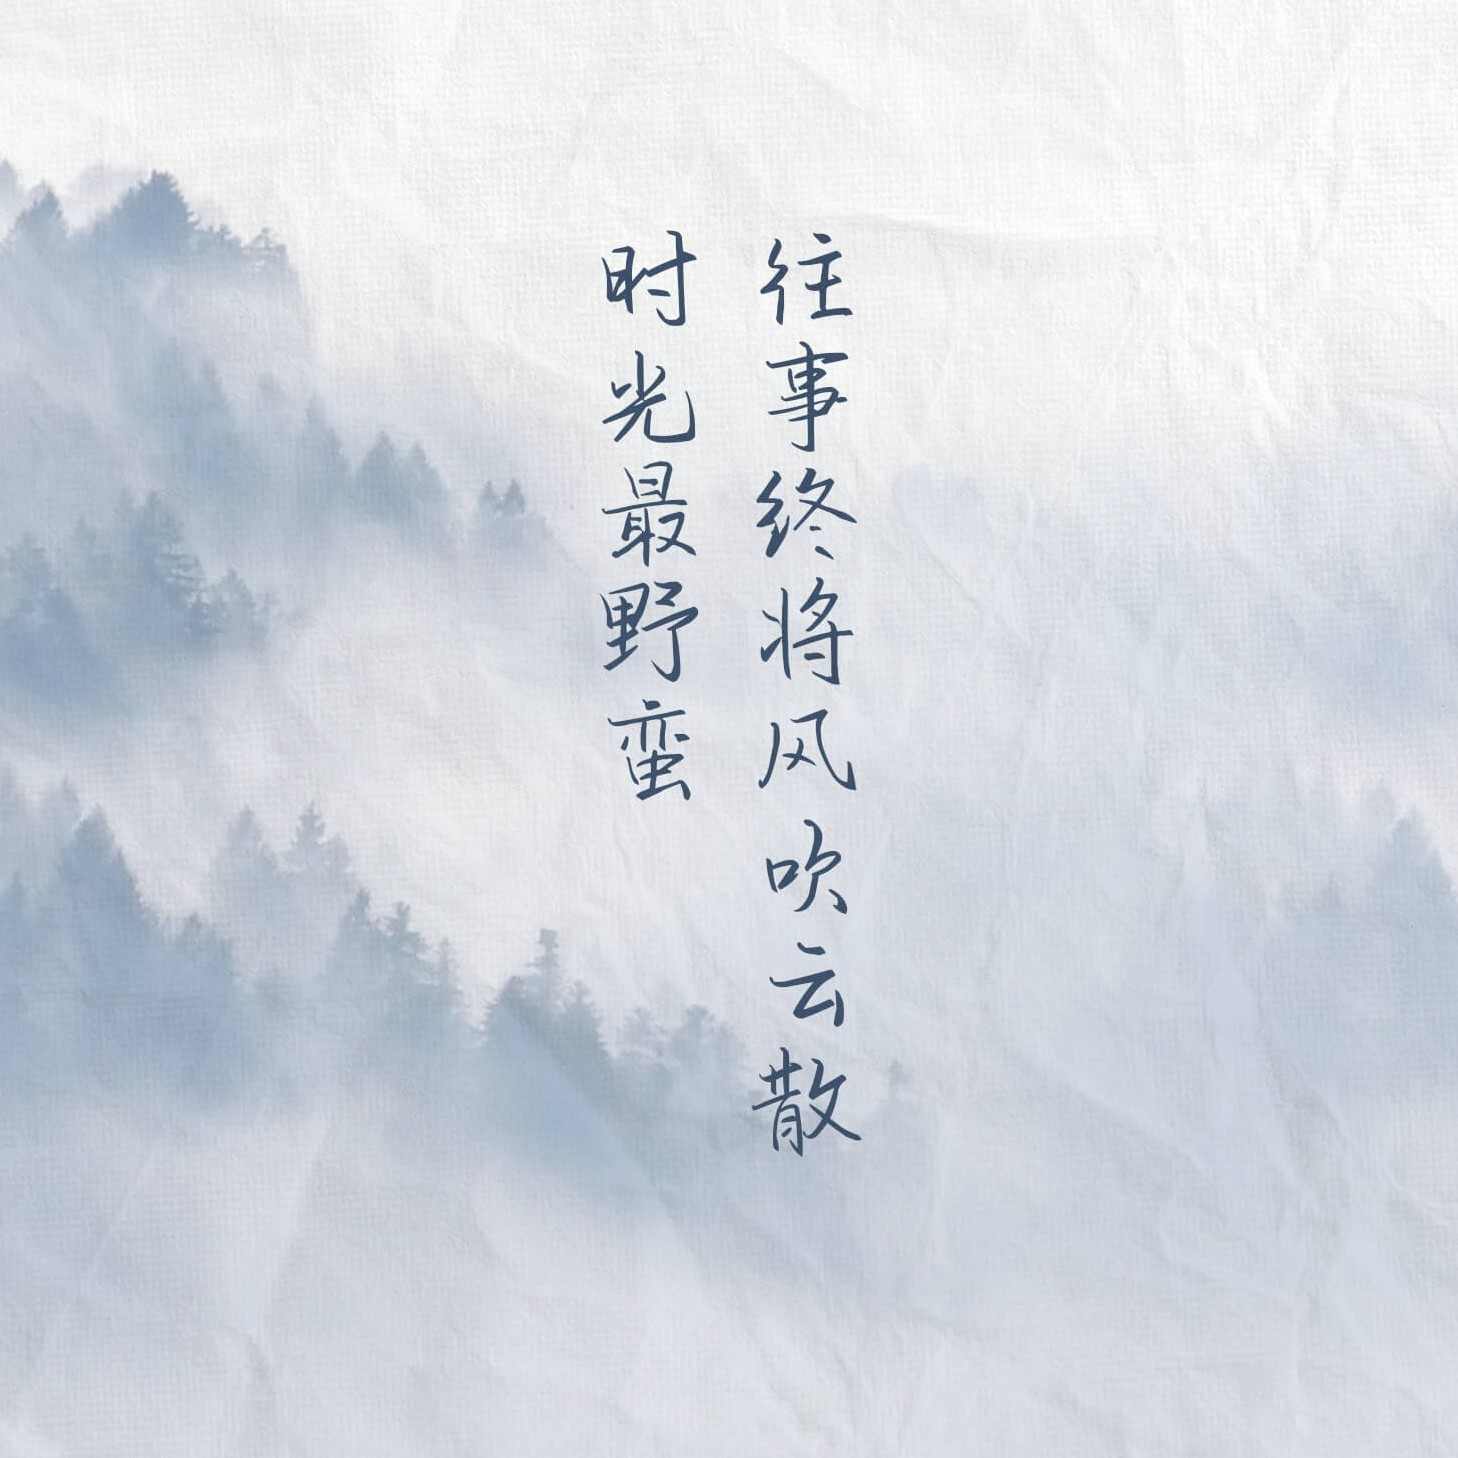 往事终将风吹云散
时光最野蛮